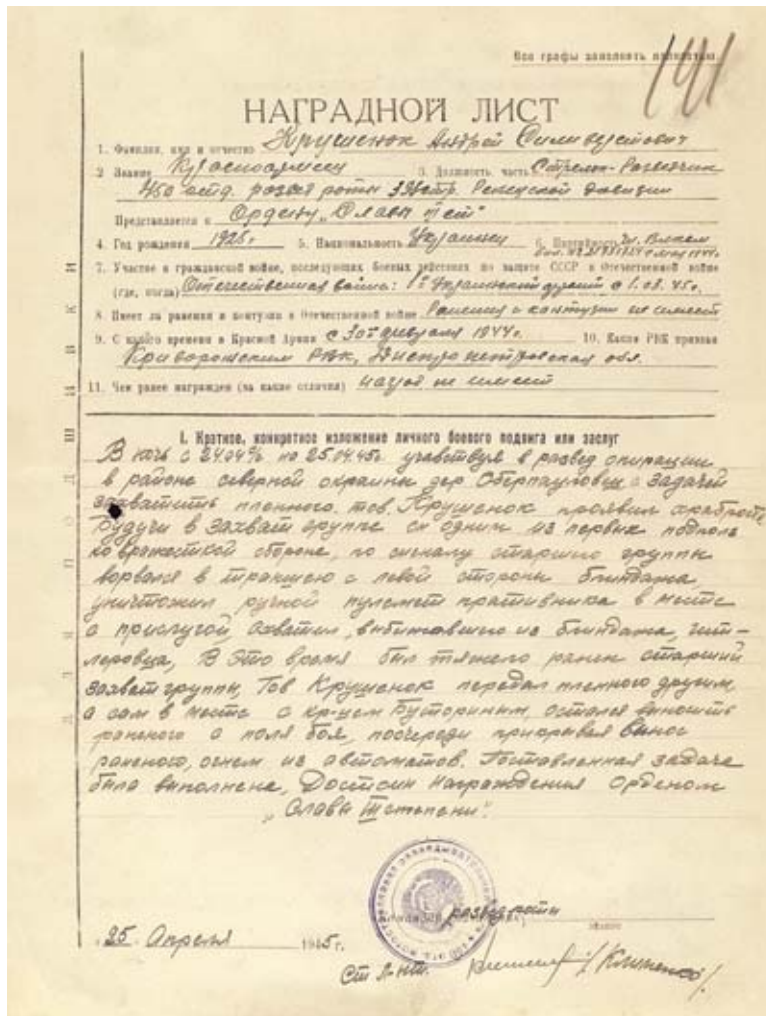 Все графы заполнять полностью
141
НАГРАДНОЙ ЛИСТ
1. Фамилия, имя и отчество Крушенок Андрей
2 Звание Красноармеец 3. Должность, часть Стрелок-Разведчик
450 отд. развед роты стр. дивизии
Представляется к Ордену „Славы III ст"
4. Год рождения 1926 г 5. Национальность Украинец 6. Партийность чл. Влксм
7. Участие в гражданской войне, последующих боевых действиях по защите СССР и отечественной войне
(где, когда) Отечественная война: 1й Украинский фронт с 1.03.45г.
8. Имеет ли ранения и контузии в Отечественной войне Ранения и контузии не имеет
9. С какого времени в Красной Армии с февраля 1944г. 10. Каким РВК призван
Криворожским РВК, Днепропетровская обл.
11. Чем ранее награжден (за какие отличия) наград не имеет
I. Краткое, конкретное изложение личного боевого подвига или заслуг
В ночь с 24.04 на 25.04.45г участвуя в развед операции
в районе северной окраины дер с задачей
захватить пленного. тов. Крушенок проявил храбрость
Будучи в захват группе он одним из первых подполз
ко вражеской обороне, по сигналу старшего группы
ворвался в траншею с левой стороны блиндажа,
уничтожил ручной пулемет противника в месте
с прислугой, схватил, выбежавшего из блиндажа, гит-
леровца, В это время был тяжело ранен старший
захват группы, Тов Крушенок передал пленного другим,
а сам в месте с кр-цем Буториным, остался выносить
раненого с поля боя, поочереди прикрывая вынос
раненого, огнем из автоматов. Поставленная задача
была выполнена, Достоин награждения орденом
„Славы III степени".
развед роты
звание
„25. Апреля 1945г.
Ст л-нт. /Клименко/